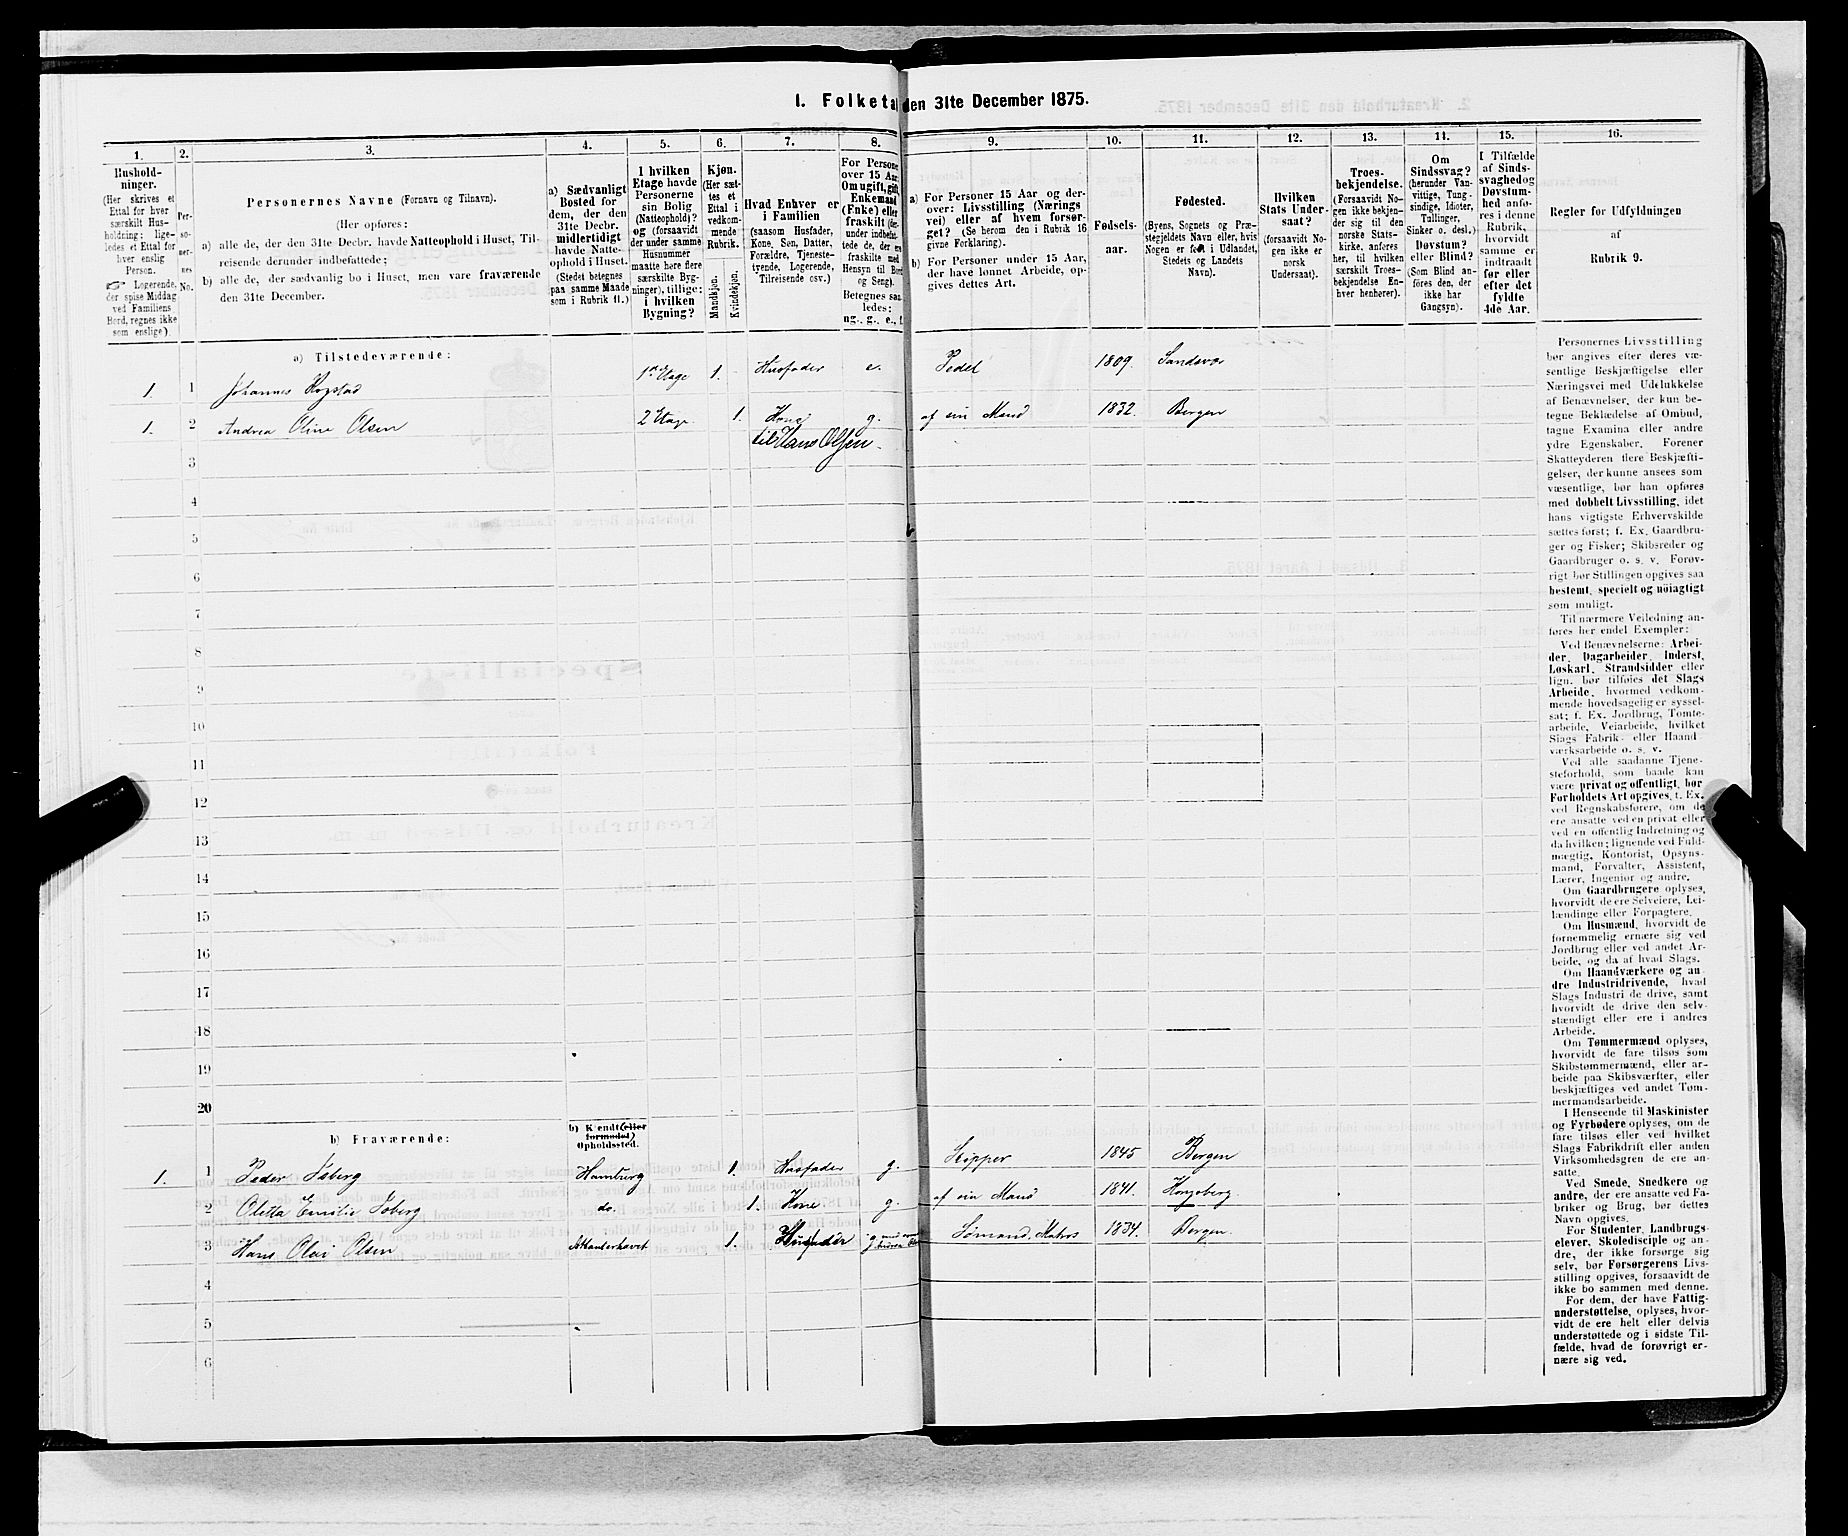 1. Folketa den 31te December 1875.
1.
2.
3.
4.
5.
6.
7.
8.
9.
10.
11.
12.
13.
14.
15.
16.
Hushold-
ninger.
(Her skrives et
Ettal for hver
særskilt Hus-
holdning: lige-
ledes et Ettal for
hver enslig
Person.
Logerende,
der spise Middag
ved Familiens
Bord, regnes ikke
som enslige).
Per-
so-
ner-
nes
No.
Personernes Navne (Fornavn og Tilnavn).
(Her opføres:
a) alle de, der den 31te Decbr. havde Natteophold i Huset, Til-
reisende derunder indbefattede;
b) alle de, der sædvanlig bo i Huset, men vare fraværende
den 31te December.
a) Sædvanligt
Bosted for
dem, der den
31te Decbr.
midlertidigt
havde Natte-
ophold i Huset.
(Stedet betegnes
paa samme Maade
som i Rubrik 11.)
I hvilken
Etage havde
Personerne
sin Bolig
(Natteophold)?
og (forsaavidt
der under samme
Husnummer
maatte høre flere
særskilte Byg-
ninger), tillige:
i hvilken
Bygning?
Kjøn.
(Her sæt-
tes et
Ettal i
vedkom-
mende
Rubrik.
Mandkjøn.
Kvindekjøn.
Hvad Enhver er
i Familien
(saasom Husfader,
Kone, Søn, Datter,
Forældre, Tjeneste-
tyende, Logerende,
Tilreisende osv.)
For Persone
over 15 Aar:
Om ugift, gift,
Enkemand
(Enke) eller
fraskilt (der-
under indbefat-
tede de, der ere
fraskilte med
Hensyn til Bord
og Seng).
Betegnes saa
ledes:
ug., g., e., f.
a) For Personer 15 Aar og der-
over: Livsstilling (Nærings
vei) eller af hvem forsør-
get? (Se herom den i Rubrik 16
givne Forklaring).
b) For Personer under 15 Aar,
der have lønnet Arbeide, op-
gives dettes Art.
Fødsels-
aar.
Fødested.
(Byens, Sognets og Præ-
stegjeldets Navn eller, hvis
Nogen er født i Udlandet,
Stedets og Landets
Navn).
Hvilken
Stats Under-
saat?
(forsaavidt No-
gen ikke er
norsk
Undersaat).
Troes-
bekjendelse.
(Forsaavidt No-
gen ikke bekjen-
der sig til den
norske Stats-
kirke, anføres
her, til hvilken
særskilt Troes-
bekjendelse En-
hver henhører).
Om
Sindssvag?
(herunder Van-
vittige, Tung-
sindige, Idioter,
Tullinger,
Sinker o. desl.)
Døvstum?
eller Blind?
(Som Blind an-
føres den, der
ikke har
Gangsyn).
I Tilfælde
af Sinds-
svaghed og
Døvstum-
hed anfø-
res i denne
Rubrik,
hvorvidt
samme er
indtraadt
før eller
efter det
fyldte
4de Aar.
Regler for Udfyldningen
af
Rubrik 9.
a) Tilstedeværende:
1. 1 Johannes Hogstad 1ste Etage 1. Husfader e. Pedel 1809. Sandsvær
1. 2 Andrea Oline Olsen 2 Etage 1. Kone g. af sin Mand 1832. Bergen
til Hans Olsen.
3
4
5
6
7
8
9
10
11
12
13
14
15
16
17
18
19
20
b) Fraværende:
b) Kjendt (eller
formodet)
Opholdssted.
1. 1 Peder Søberg Hamburg 1. Husfader g. Skipper 1845 Bergen
2 Oletta Emilie Søberg do. 1. Kone g. af sin Mand 1841. Kongsberg.
3 Hans Olai Olsen Atlanterhavet 1. Husfader g. Sømand, Matros 1834. Bergen.
4
5
6
Personernes Livsstilling
bør angives efter deres væ-
sentlige Beskjæftigelse eller
Næringsvei med Udelukkelse
af Benævnelser, der kun be-
tegne Beklædelse af Ombud,
tagne Examina eller andre
ydre Egenskaber. Forener
Skatteyderen flere Beskjæfti-
gelser, der kunne ansees som
væsentlige, bør han opføres
med dobbelt Livsstilling, idet
hans vigtigste Erhvervskilde
sættes først; f. Ex. Gaardbru-
ger og Fisker; Skibsreder og
Gaardbruger o. s. v. Forøv-
rigt bør Stillingen opgives saa
bestemt, specielt og nøiagtigt
som muligt.
Til nærmere Veiledning an-
føres her endel Exempler:
Ved Benævnelserne: Arbei-
der, Dagarbeider, Inderst,
Løskarl, Strandsidder eller
lign. bør tilføies det Slags
Arbeide, hvormed vedkom-
mende hovedsagelig er syssel-
sat; f. Ex. Jordbrug, Tomte-
arbeide, Veiarbeide, hvilket
Slags Fabrik- eller Haand
værksarbeide o. s. v.
Ved alle saadanne Tjene-
steforhold, som baade kan
være privat og offentligt, bør
Forholdets Art opgives, f. Ex.
ved Regnskabsførere, om de
ere ansatte ved en privat eller
ved en offentlig Indretning og
da hvilken; lignende ved Fuld-
mægtig, Kontorist, Opsyns-
mand, Forvalter, Assistent,
Lærer, Ingeniør og andre.
Om Gaardbrugere oplyses,
hvorvidt de ere Selveiere, Lei-
lændinge eller Forpagtere.
Om Husmænd, hvorvidt de
fornemmelig ernære sig ved
Jordbrug eller ved andet Ar-
beide, og da af hvad Slags.
Om Haandværkere og an-
dre Industridrivende, hvad
Slags Industri de drive, samt
hvorvidt de drive den selv-
stændigt eller ere i andres
Arbeide.
Om Tømmermænd oplyses,
hvorvidt de fare tilsøs som
Skibstømmermænd, eller ar-
beide paa Skibsværfter, eller
beskjæftiges ved andet Tøm-
mermandsarbeide.
I Henseende til Maskinister
og Fyrbødere oplyses, om de
fare tilsøs eller ved hvilket
Slags Fabrikdrift eller anden
Virksomhedsgren de ere an-
satte.
Ved Smede, Snedkere og
andre, der ere ansatte ved Fa-
briker og Brug, bør dettes
Navn opgives.
For Studenter, Landbrugs-
elever, Skoledisciple og an-
dre, der ikke forsørge sig
selv, bør Forsørgerens Livs-
stilling opgives, forsaavidt de
ikke bo sammen med denne.
For dem, der have Fattig-
understøttelse, oplyses, hvor-
vidt de ere helt eller delvis
understøttede og i sidste Til-
fælde, hvad de forøvrigt er-
nære sig ved.